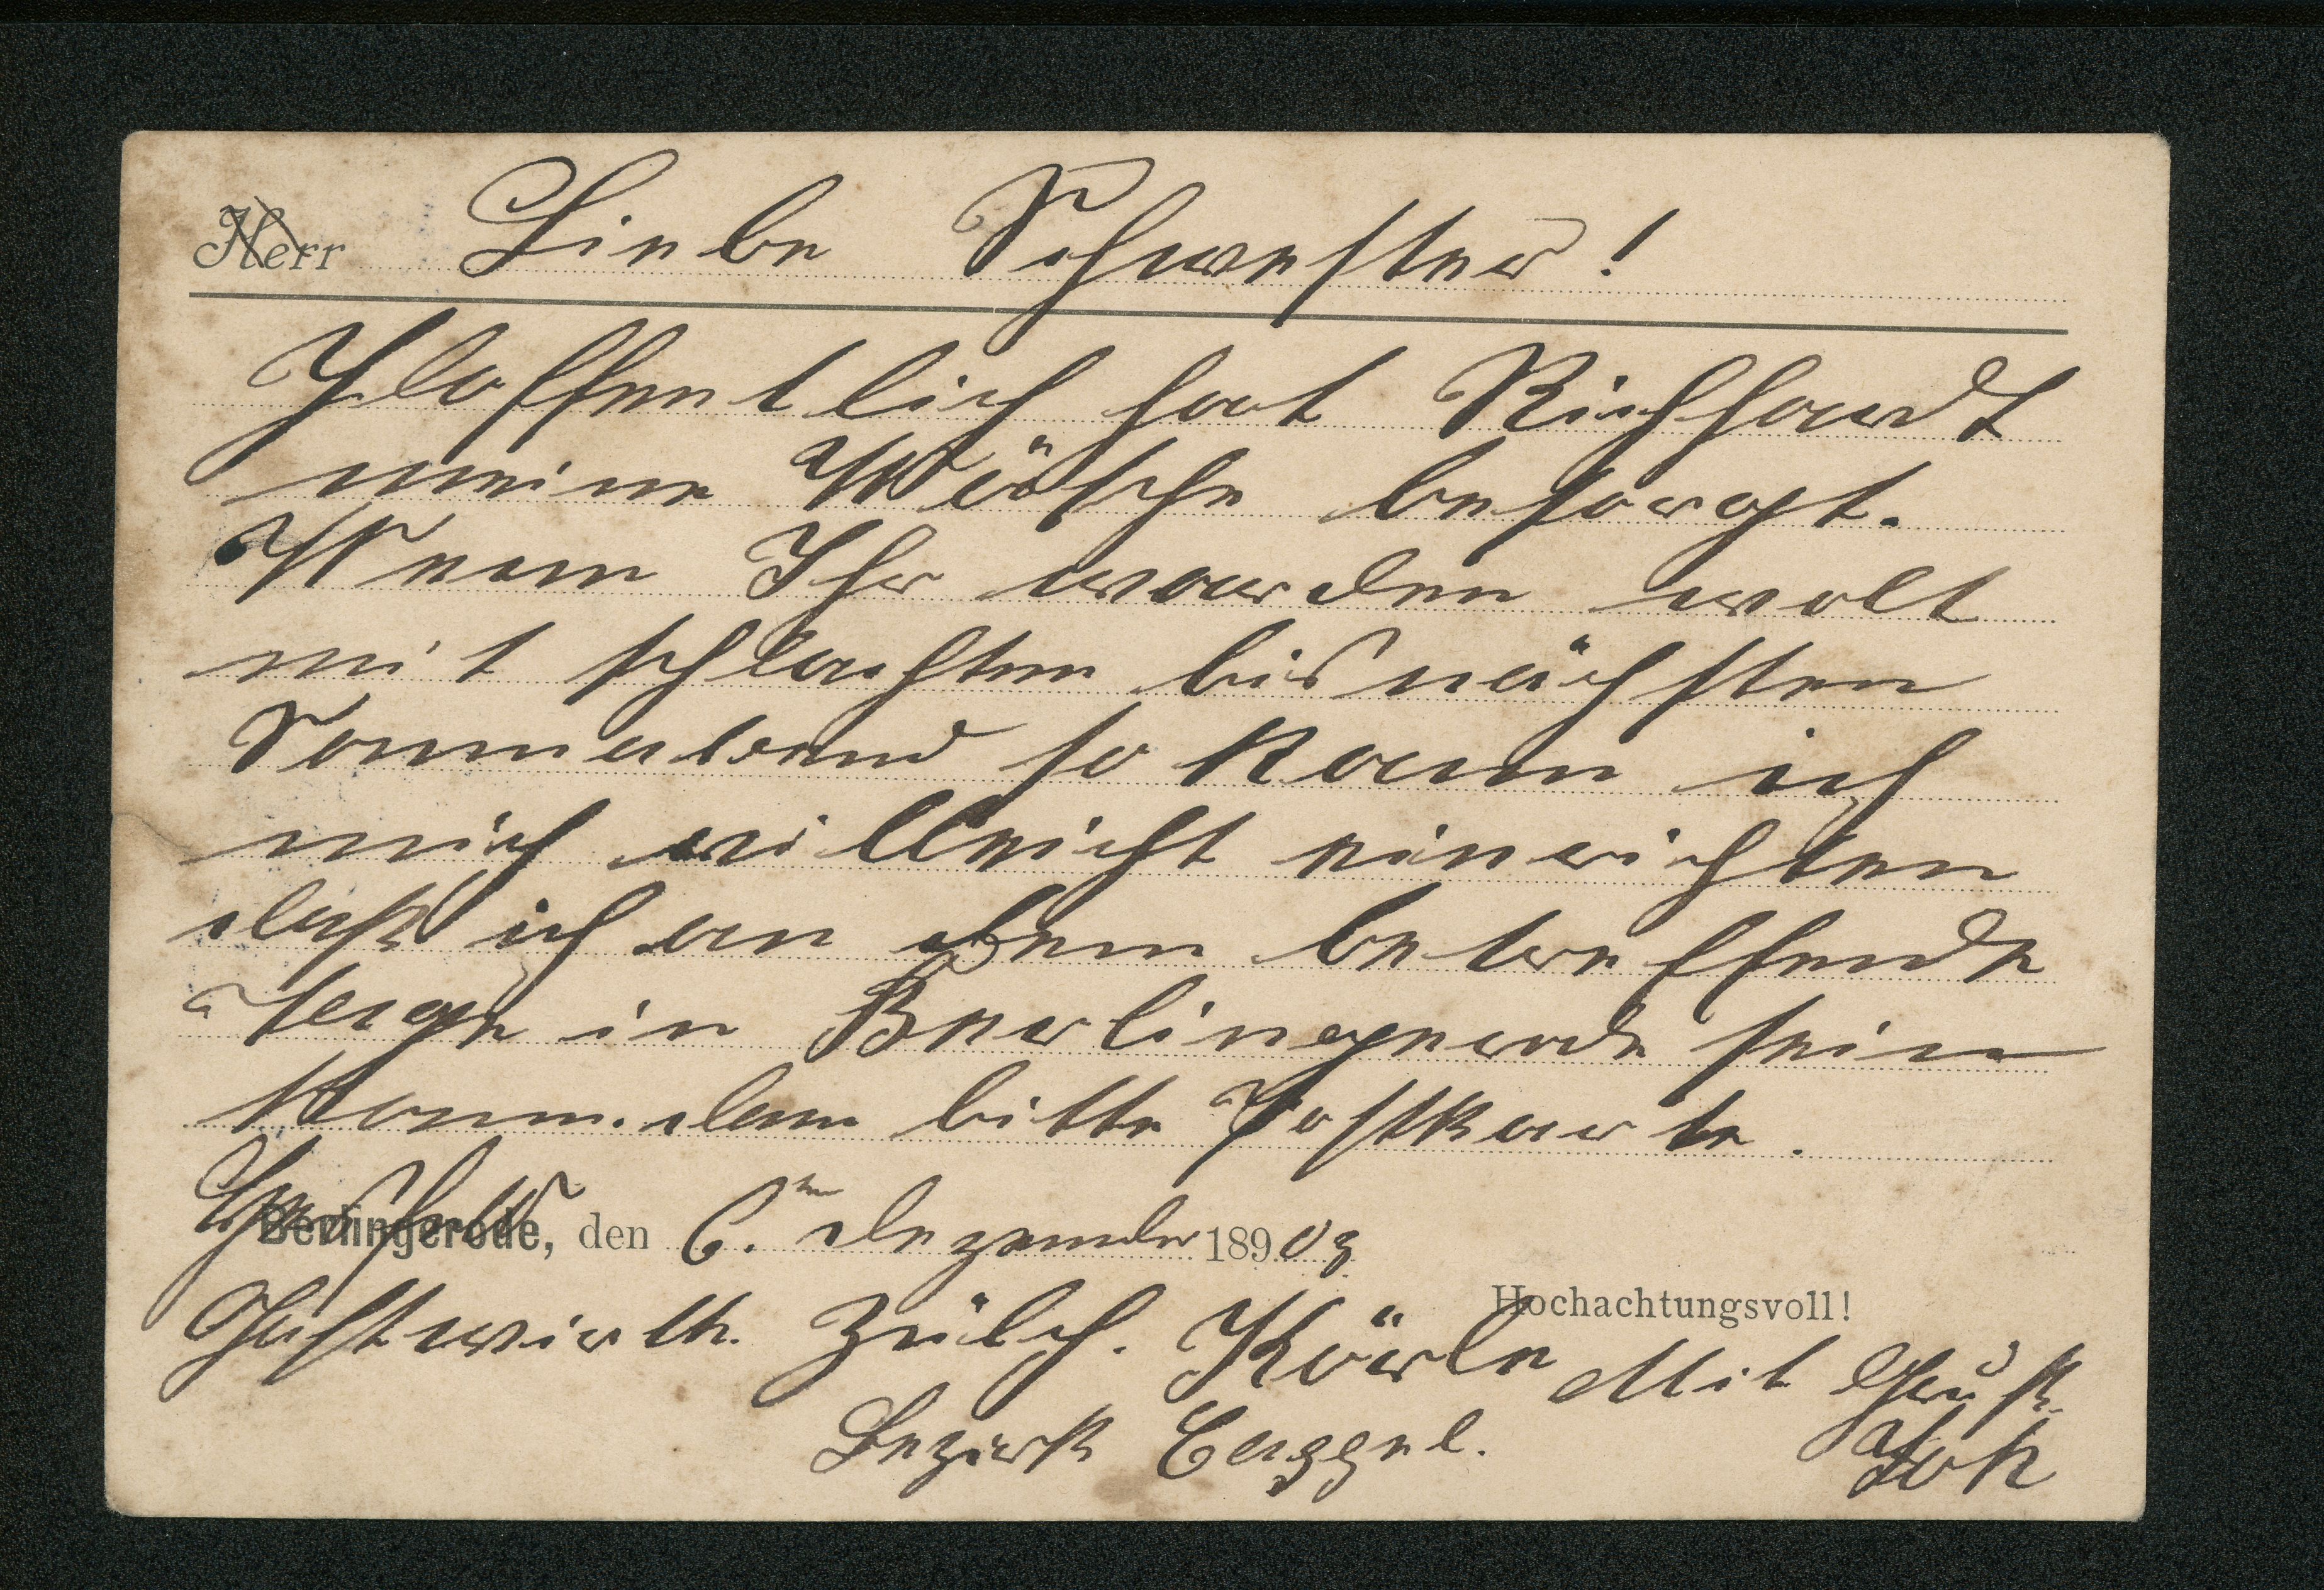 Herr Liebe Schwester!
Hoffentlich hat Richhardt
meine Wäsche besorgt.
Wenn Ihr warden wolt
mit schlachten bis nächsten
Sonnabend so kann ich
mich villeicht einrichten
daß ich an dem betreffende
Tage in Berlingerode sein
kann. dann bitte Postkarte.
Berlingerode, den 6. Dezember 189 03
Hochachtungsvoll!
Gastwirth. Zülch. Körle Mit Gruß
Bezirk Cassel. Joh